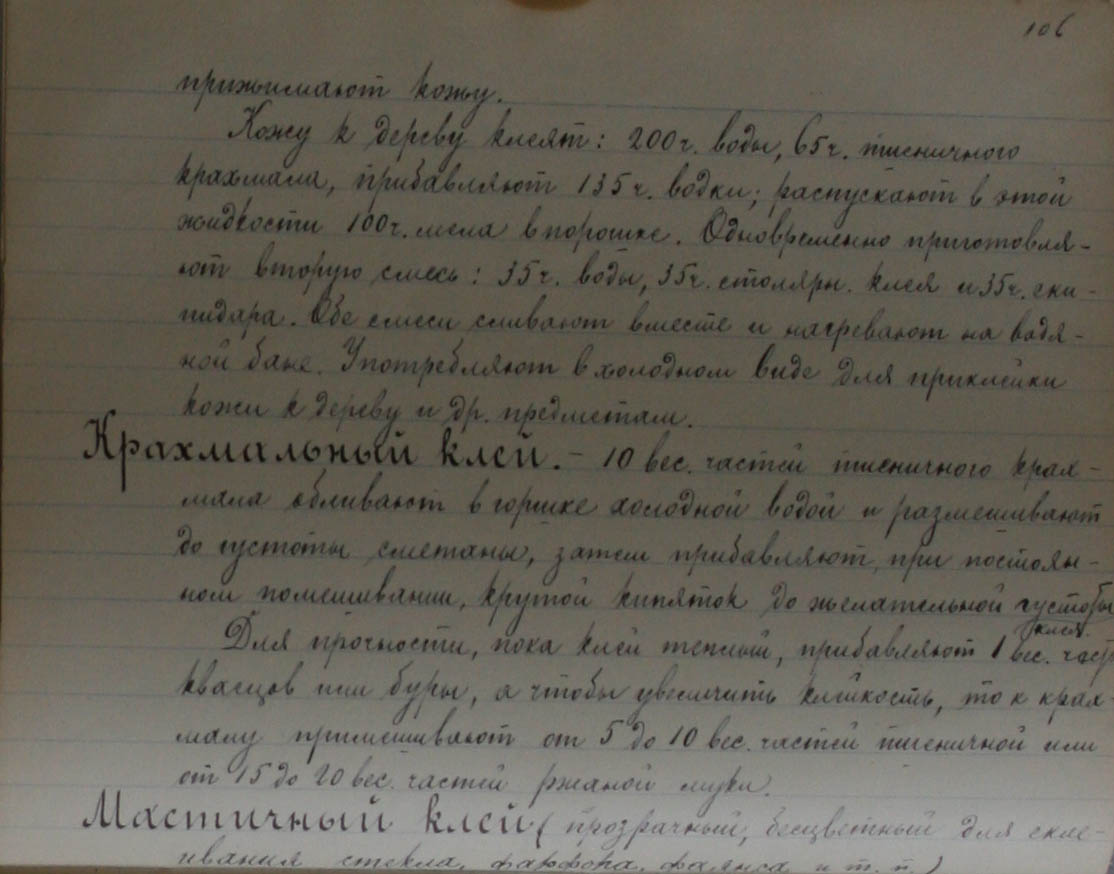 106
прижимают кожу.
Кожу к дереву клеят: 200 ч. воды, 65 ч. пшеничного
крахмала, прибавляют 135 ч. водки; распускают в этой
жидкости 100 ч. мела в порошке. Одновременно приготовля-
ют вторую смесь: 35 ч. воды, 35 ч. столярн. клея и 35 ч. ски-
пидара. Обе смеси сливают вместе и нагревают на водя-
ной бане. Употребляют в холодном виде для приклейки
кожи к дереву и др. предметам.
Крахмальный клей. – 10 вес. частей пшеничного крах-
мала обливают в горшке холодной водой и размешивают
до густоты сметаны, затем прибавляют, при постоян-
ном помешивании, крутой кипяток до желательной густоты
клея.
Для прочности, пока клей теплый, прибавляют 1 вес. част
квасцов или буры, а чтобы увеличить клейкость, то к крах
малу примешивают от 5 до 10 вес. частей пшеничной или
от 15 до 20 вес. частей ржаной муки.
Мастичный клей (прозрачный, бесцветный для скле-
ивания стекла, фарфора, фаянса и т. п.)